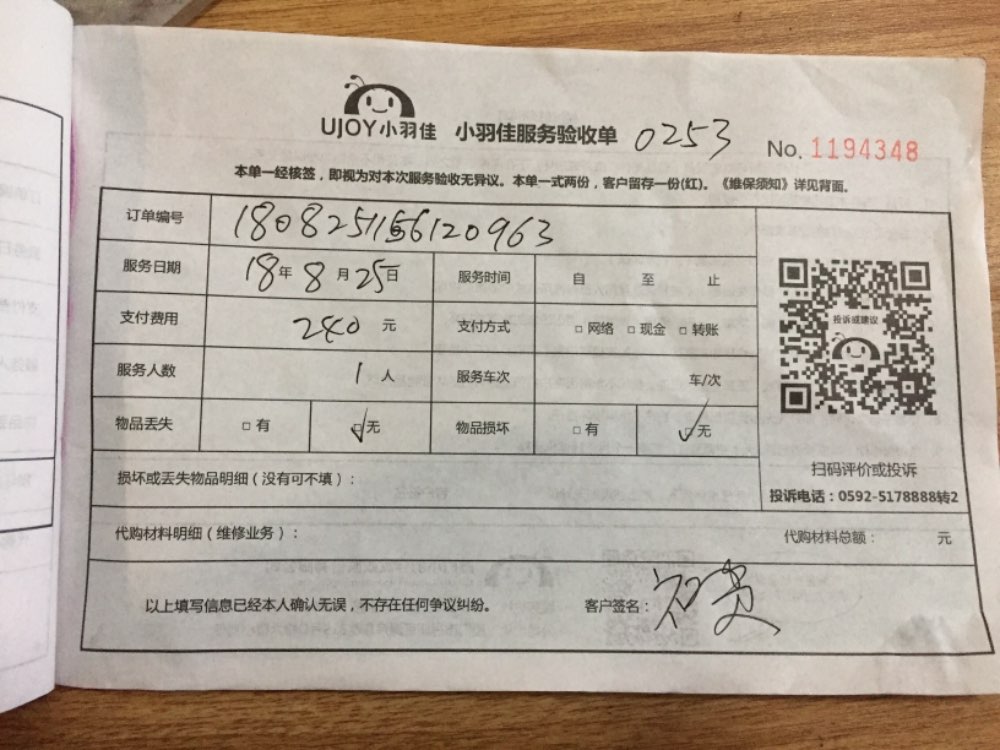 UJOY小羽佳 小羽佳服务验收单 0253 No. 1194348
本单一经核签，即视为对本次服务验收无异议。本单一式两份，客户留存一份(红)。《维保须知》详见背面。
订单编号 1808251156120963
服务日期 18年8月25日 服务时间 自 至 止
支付费用 240 元 支付方式 □网络 □现金 □转账
投诉或建议
服务人数 1 人 服务车次 车/次
物品丢失 □有 ☑无 物品损坏 □有 ☑无
损坏或丢失物品明细（没有可不填）：
扫码评价或投诉
投诉电话：0592-5178888转2
代购材料明细（维修业务）： 代购材料总额： 元
以上填写信息已经本人确认无误，不存在任何争议纠纷。 客户签名：